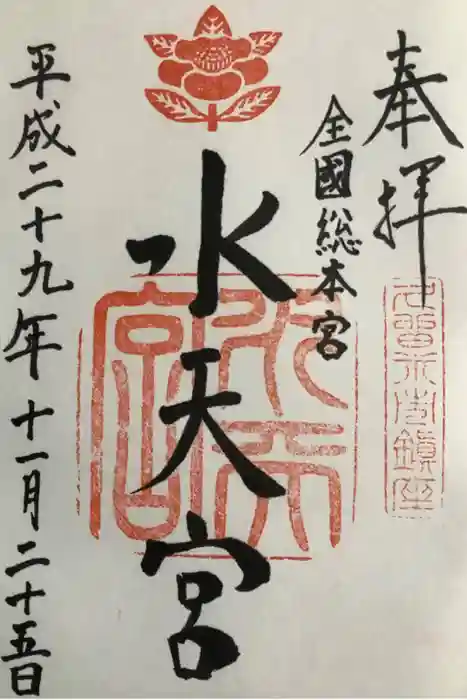 奉拝
全國総本宮
水天宮
平成二十九年十一月二十五日
水天宮